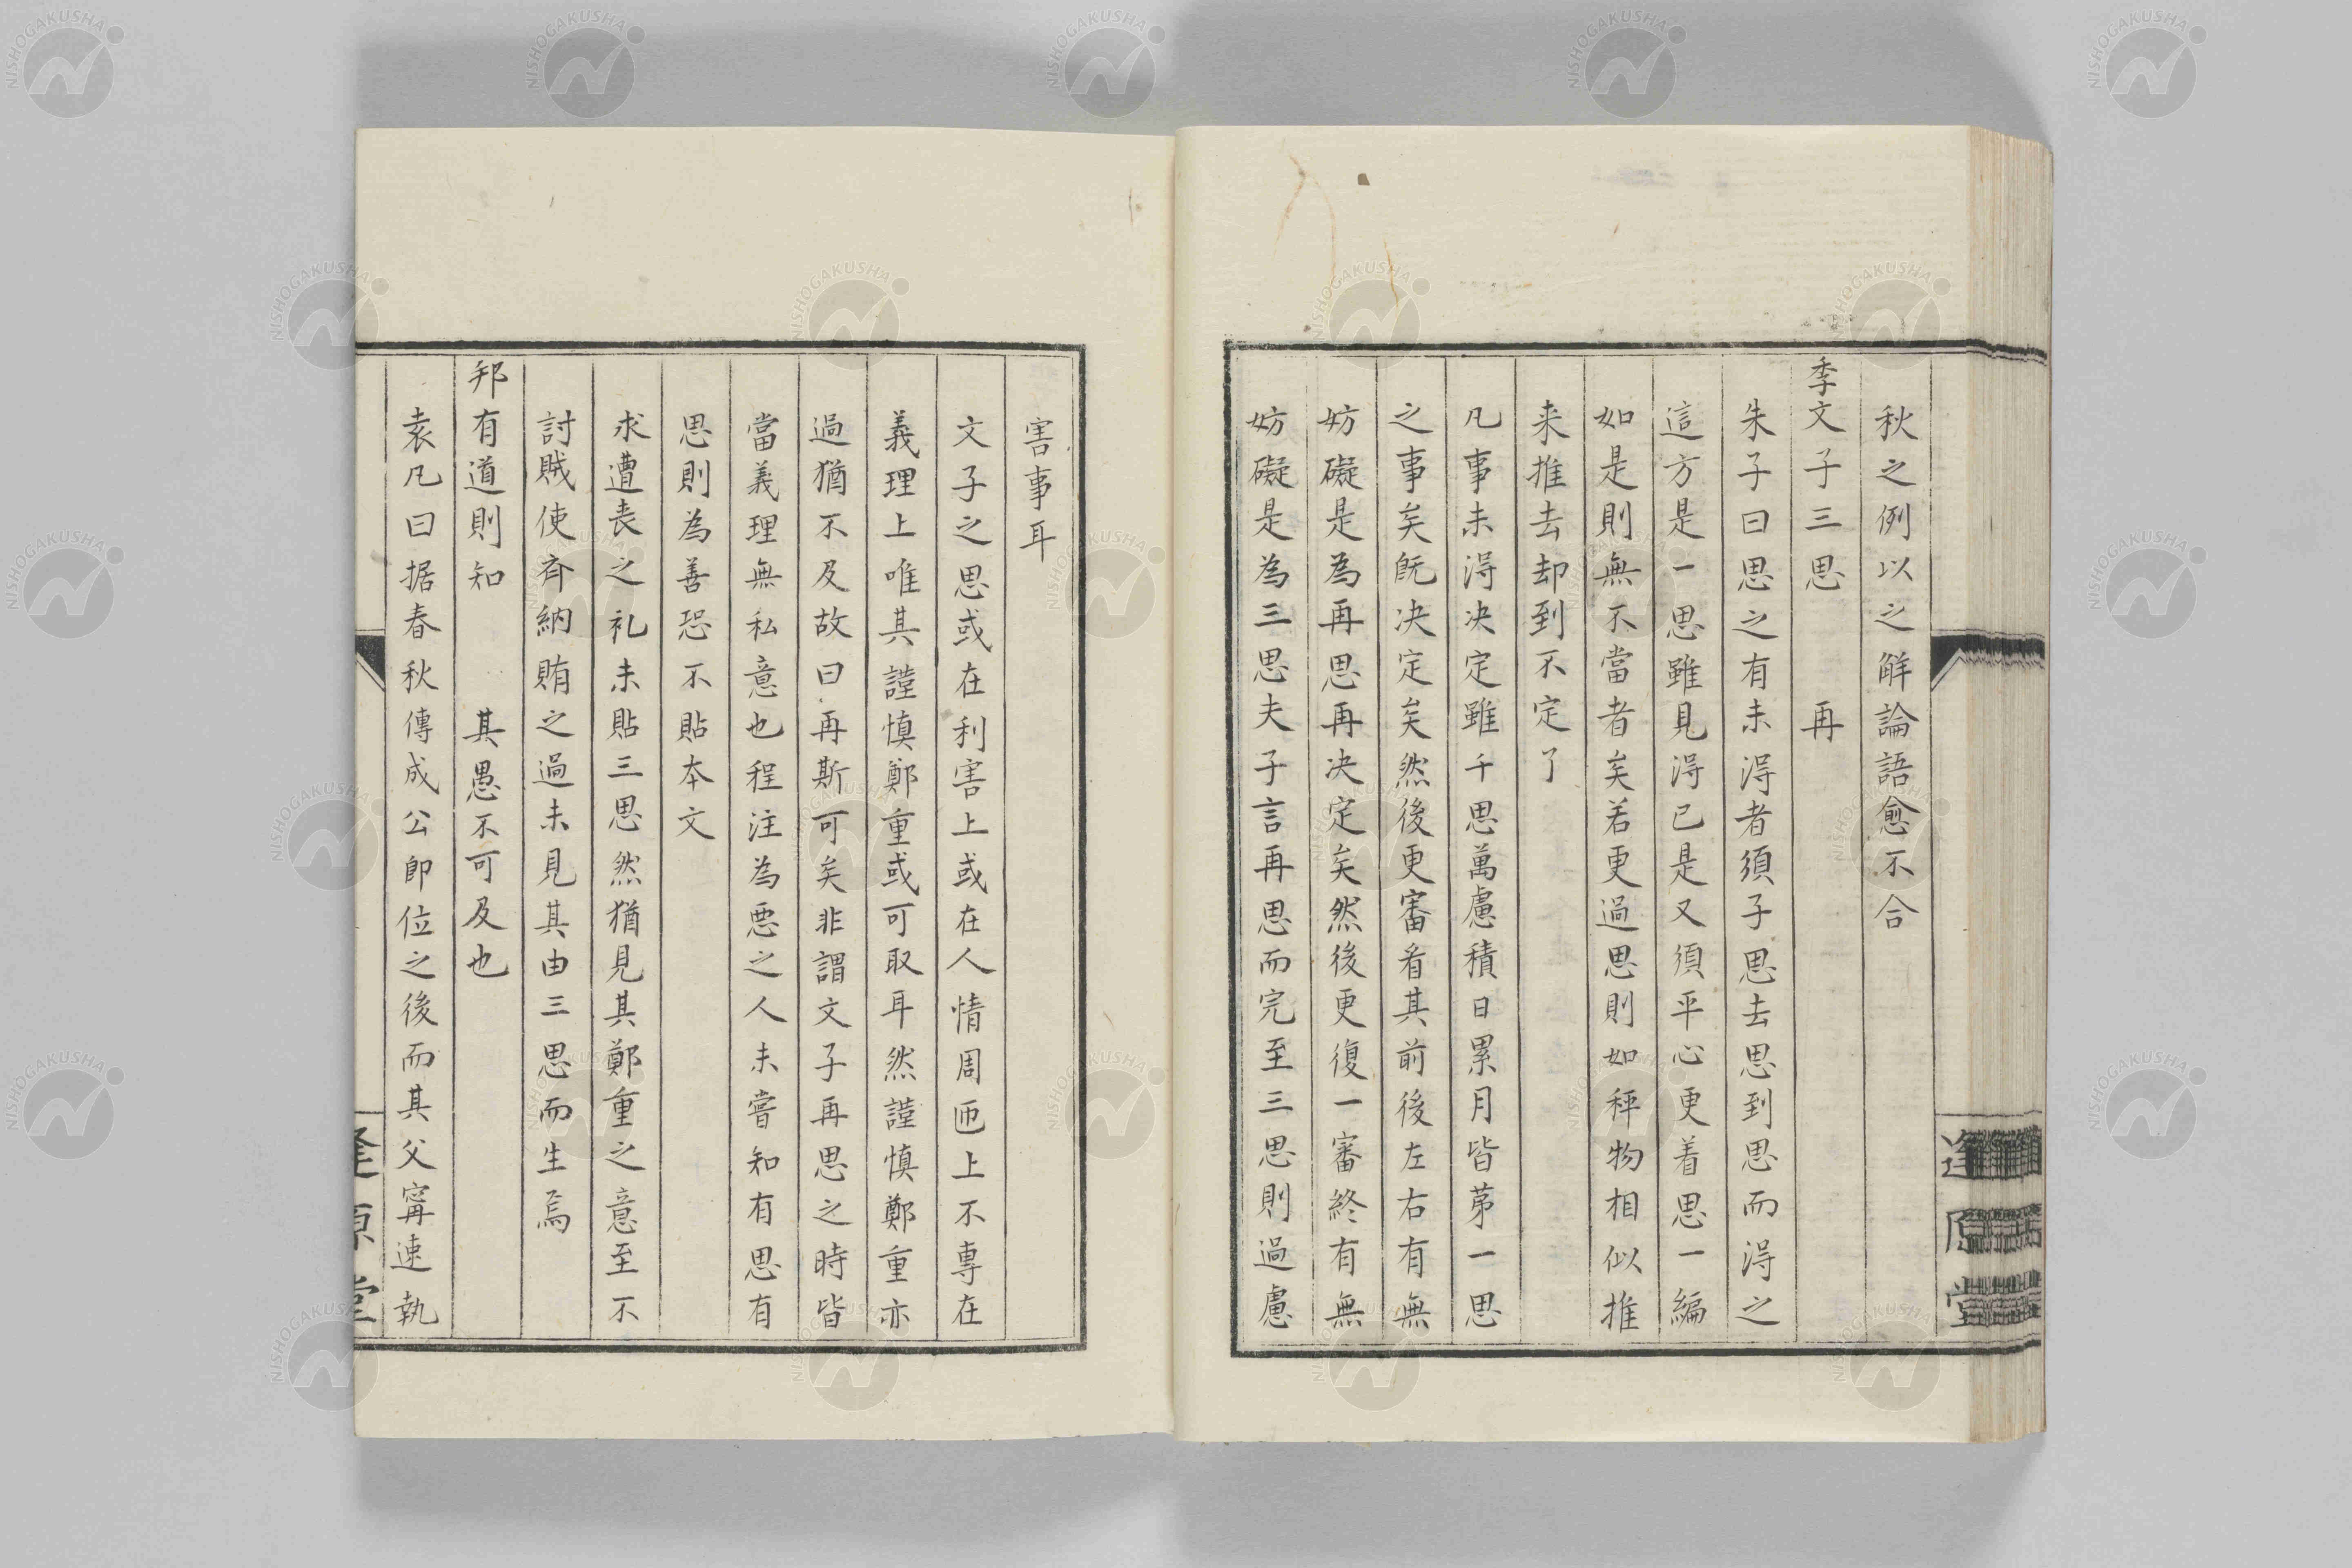 秋之例以之解論語愈不合
季文子三思　再
朱子曰思之有未得者須子思去思到思而得之
這方是一思雖見得已是又須平心更着思一編
如是則無不當者矣若更過思則如秤物相似推
来推去却到不定了
凡事未得决定雖千思萬慮積日累月皆苐一思
之事矣既决定矣然後更審看其前後左右有無
妨礙是為再思再决定矣然後更復一審終有無
妨礙是為三思夫子言再思而完至三思則過慮
逢原堂
害事耳
文子之思或在利害上或在人情周匝上不專在
義理上唯其謹慎鄭重或可取耳然謹慎鄭重亦
過猶不及故曰再斯可矣非謂文子再思之時皆
當義理無私意也程注為悪之人未嘗知有思有
思則為善恐不貼本文
求遭喪之礼未貼三思然猶見其鄭重之意至不
討賊使齊納賄之過未見其由三思而生焉
邦有道則知　其愚不可及也
袁凡曰据春秋傳成公即位之後而其父甯速執
逢原堂
NISHOGAKUSHA